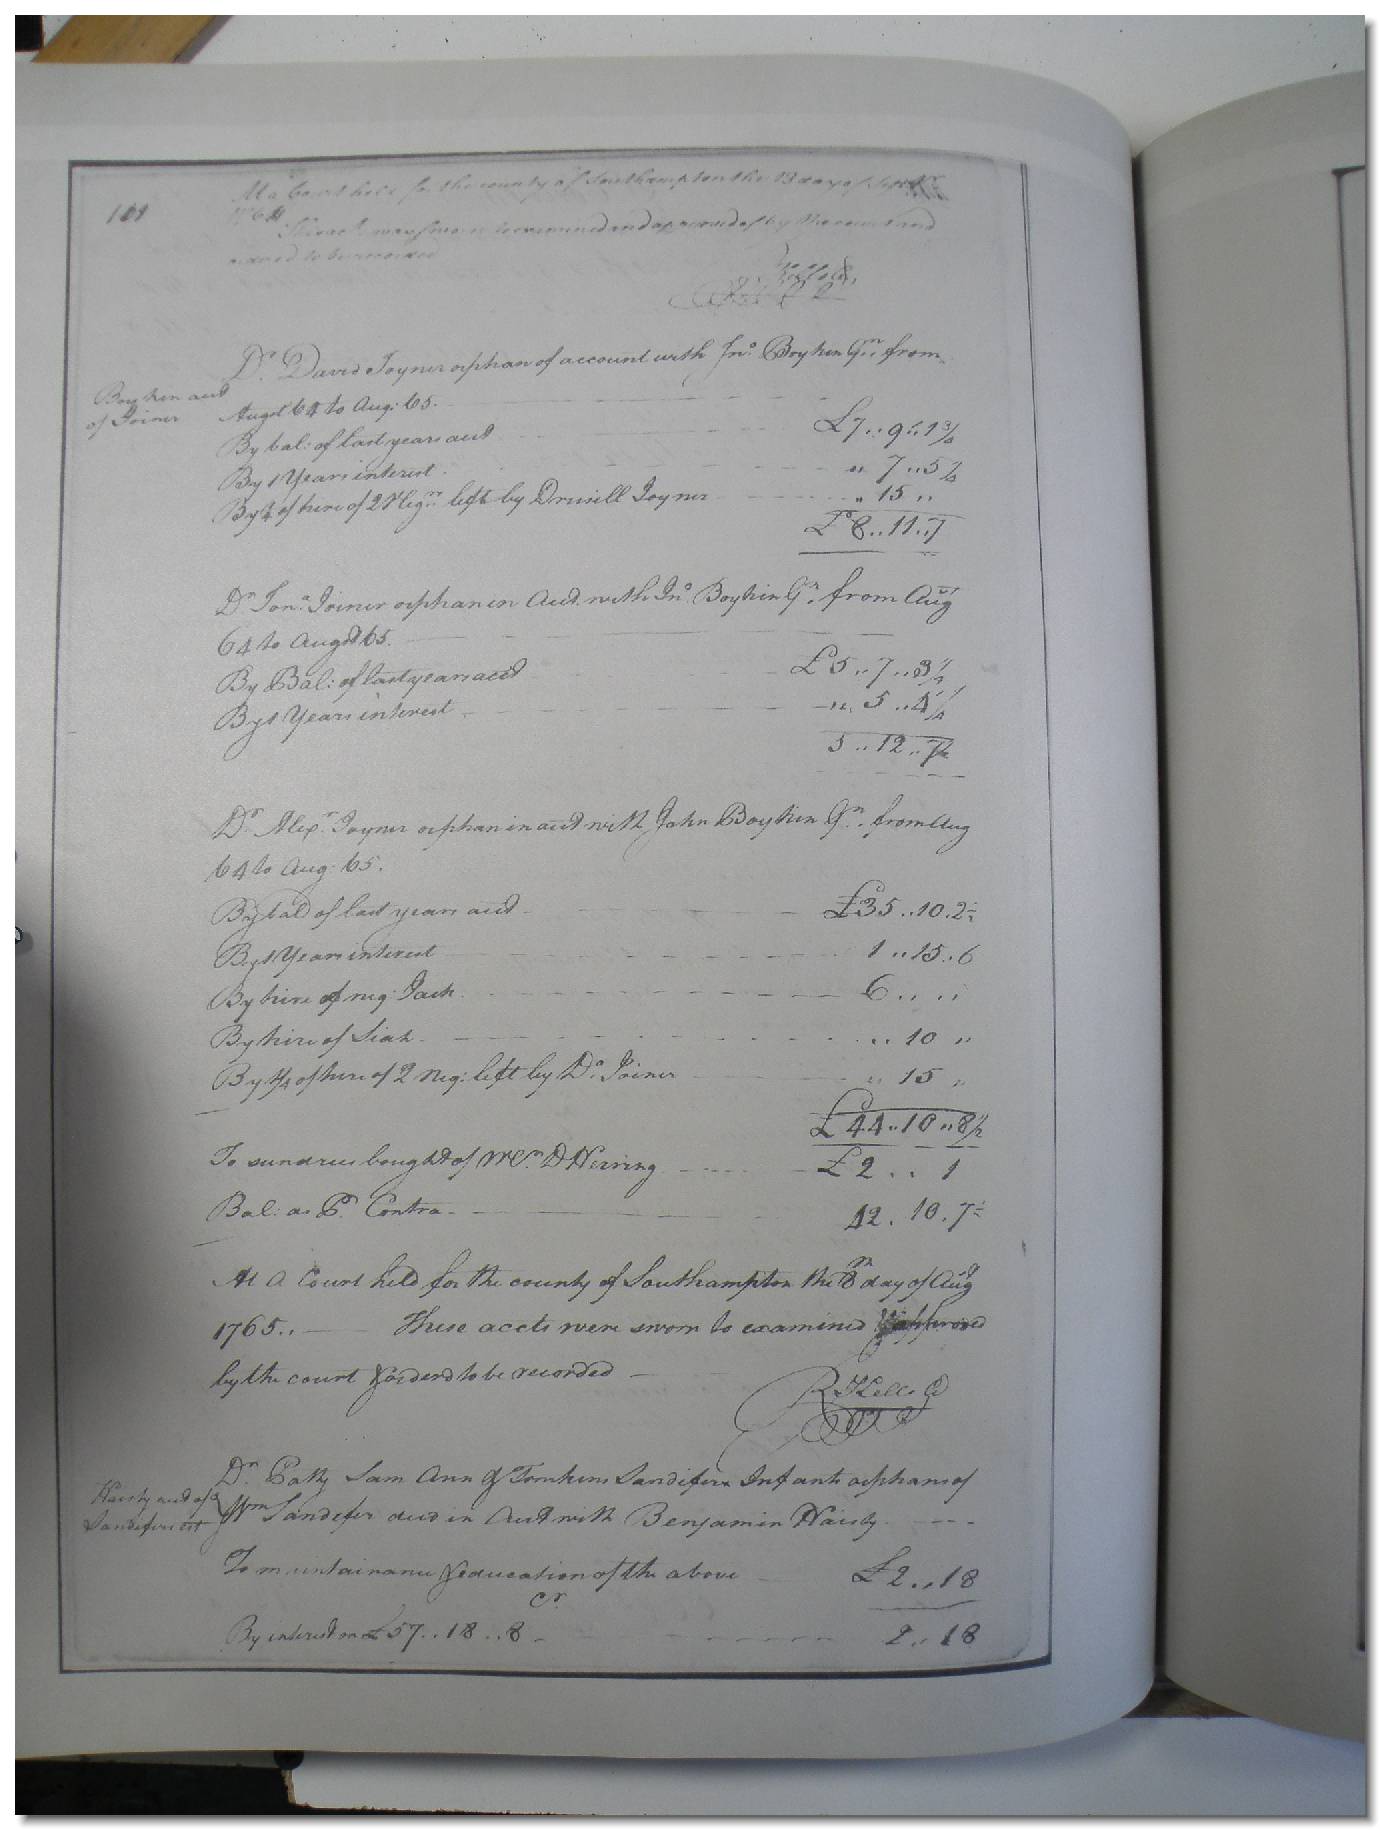 101
At a Court held for the county of Southampton the 13 day of Sept
1764
This acct was sworn to examined and approved of by the court and
ordered to be recorded
Dr. David Joyner orphan of account with Jno. Boykin Gn. from
Boykin acct
of Joiner
Augst 64 to Aug: 65.
By bal: of last years acct £7..9..1 3/4
By 1 Years interest " 7..5 3/4
By 1/4 of hire of 2 Negrs left by Drusill Joyner " 15 "
£8..11..7
Dr. Jona. Joiner orphan in Acct. with Jno. Boykin Gn. from Augst
64 to Augst 65.
By Bal: of last years acct £5..7..3 1/4
By 1 Years interest " 5..4 1/4
5..12..7 1/2
Dr. Alexr. Joyner orphan in acct with John Boykin Gn. from Aug
64 to Aug: 65.
By bald of last years acct £35..10.2 1/2
By 1 Years interest 1..15..6
By hire of neg: Jack 6.. ..
By hire of Siah .. 10 "
By 1/4 of hire of 2 neg: left by Ds. Joiner " 15 "
£44..10..8 1/2
To sundries bought of Wm. D Herring £2.. 1
Bal: as Pr. Contra 42. 10. 7 1/2
At a Court held for the county of Southampton the 8th day of Aug
1765.. These accts were sworn to examined & approved
by the court & orderd to be recorded
R Kello
Dr. Patty Sam Ann & Tomkins Sandifern Infant orphans of
Haisty acct of
Sandifers est
Wm Sandifer decd in Acct with Benjamin Haisty
To maintainance & education of the above £2..18
Cr.
By interest on £57..18..8 2..18